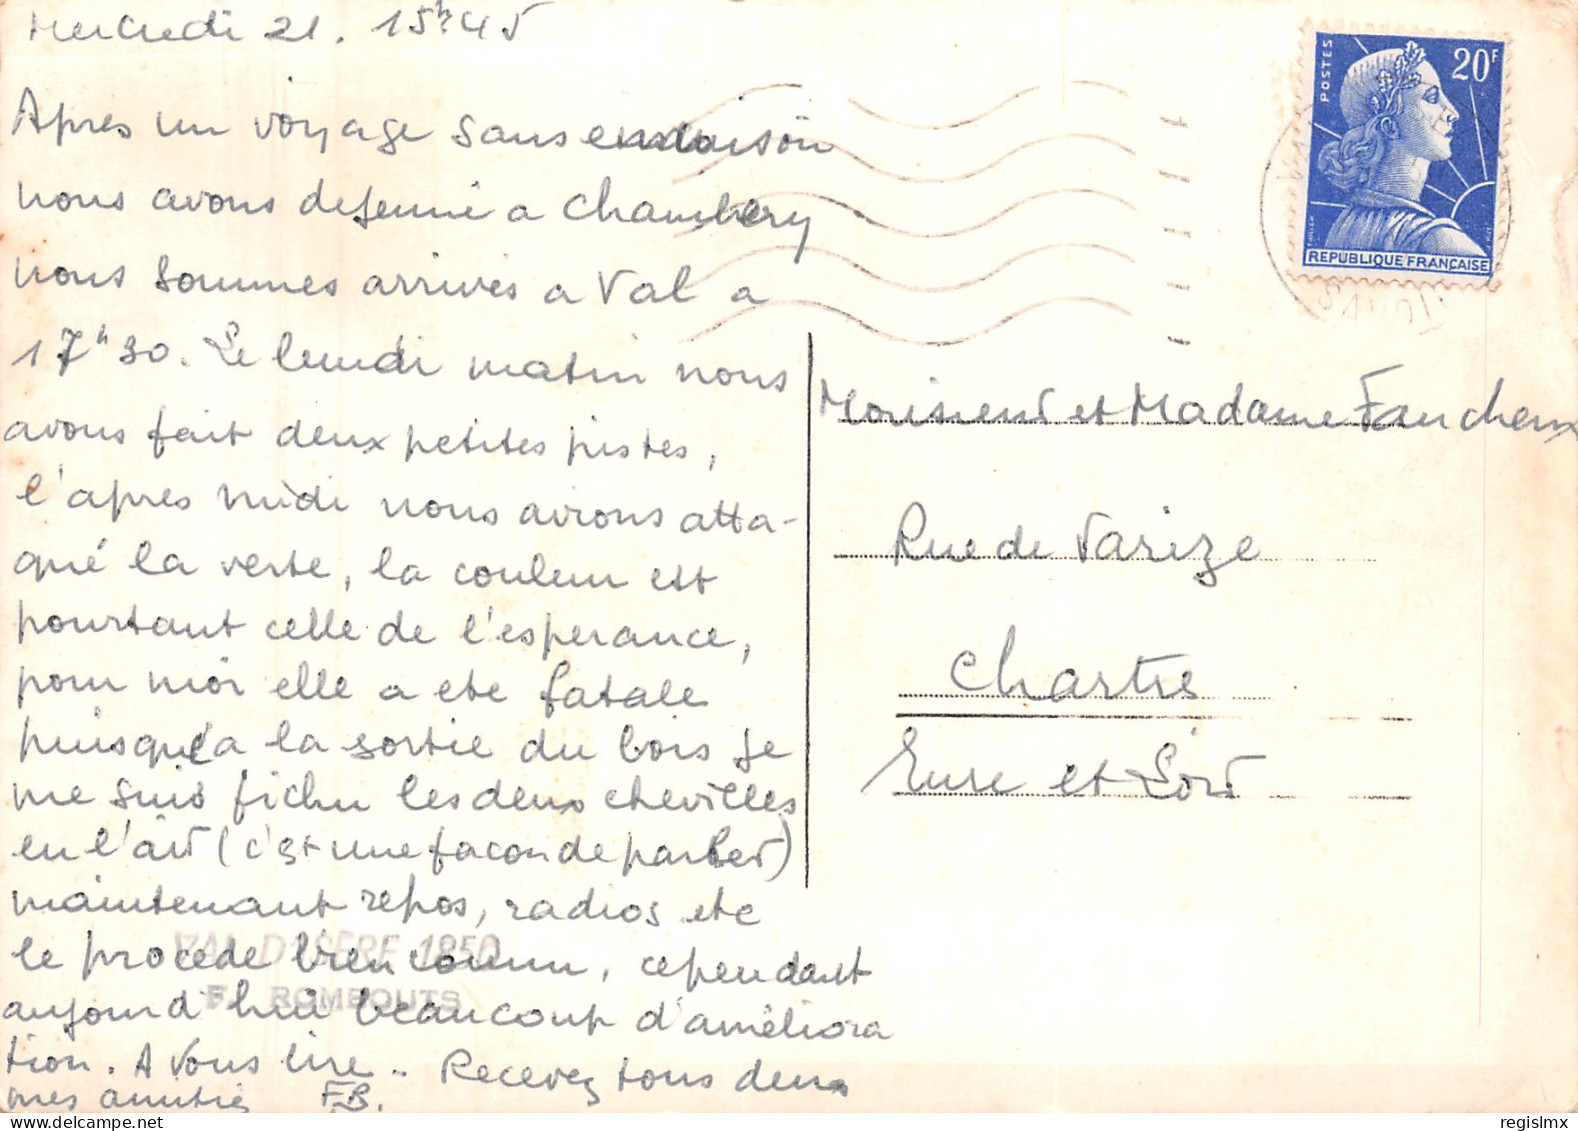 Mercredi 21. 15h45
Après un voyage sans
nous avons dejeuné a Chambery
nous sommes arrivés a Val a
17h30. Le lundi matin nous
avons fait deux petites pistes,
l'après midi nous avions atta-
qué la verte, la couleur est
pourtant celle de l'esperance,
pour moi elle a ete fatale
puisqu'a la sortie du bois je
me suis fichu les deux chevilles
en l'air (c'est une facon de parler)
maintenant repos, radios etc
le procede bien connu, cependant
aujourd'hui beaucoup d'améliora
tion. A vous lire - Recevez tous deux
mes amitiés F.B.
VAL D'ISERE 1850
F. ROMBOUTS
POSTES
20F
REPUBLIQUE FRANÇAISE
SAVOIE
Monsieur et Madame Faucheux
Rue de Varize
Chartres
Eure et Loir
regislmx